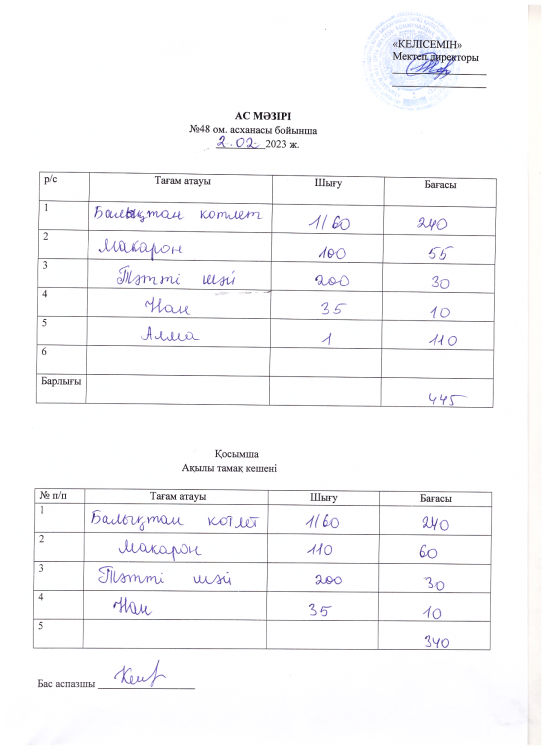 «КЕЛІСЕМІН»
Мектеп директоры
АС МӘЗІРІ
№48 ом. асханасы бойынша
2.02 2023 ж.
р/с Тағам атауы Шығу Бағасы
1 Балықтан котлет 1/60 240
2 Макарон 100 55
3 Тәтті шәй 200 30
4 Нан 35 10
5 Алма 1 110
6
Барлығы 445
Қосымша
Ақылы тамақ кешені
№ п/п Тағам атауы Шығу Бағасы
1 Балықтан котлет 1/60 240
2 Макарон 110 60
3 Тәтті шәй 200 30
4 Нан 35 10
5 340
Бас аспазшы